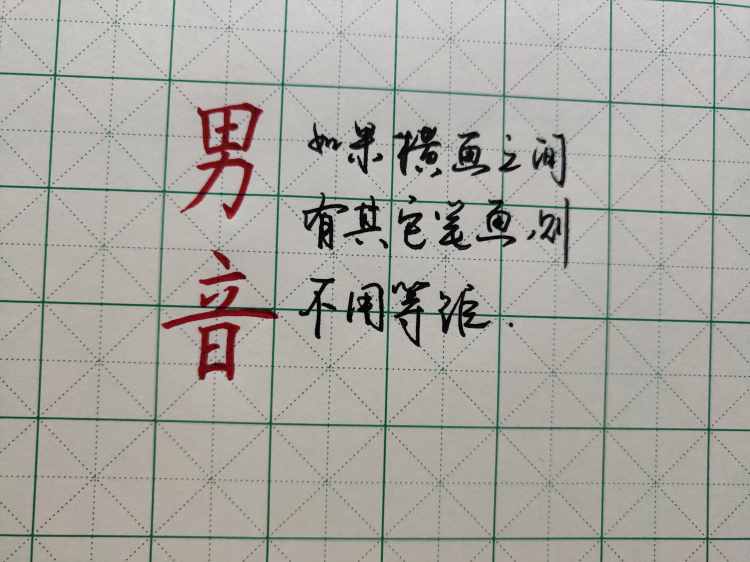 男
音
如果横画之间
有其它笔画,则
不用等距.